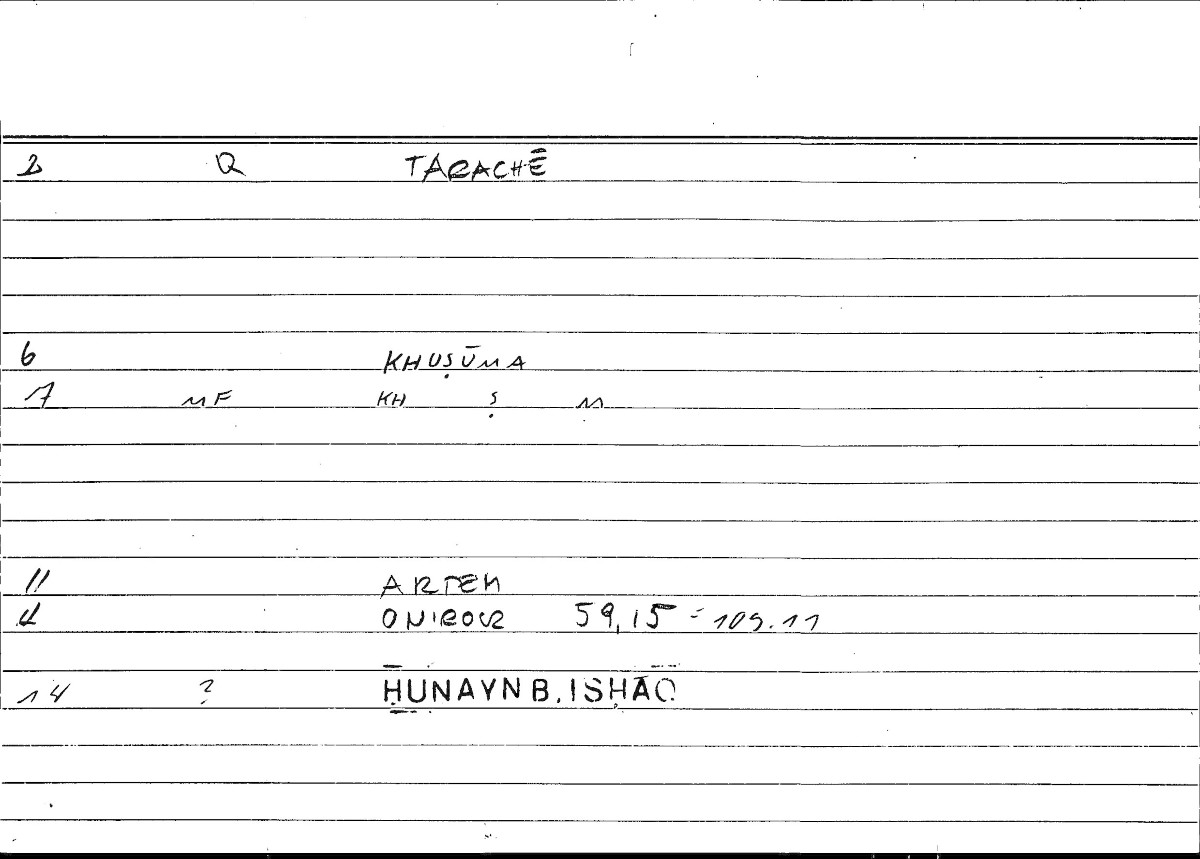 2 Q TARACHĒ
6 KHUṢŪMA
7 MF KH Ṣ M
11 ARTEM
ONIROCR 59,15 = 109.11
14 ? ḤUNAYN B. ISḤĀQ